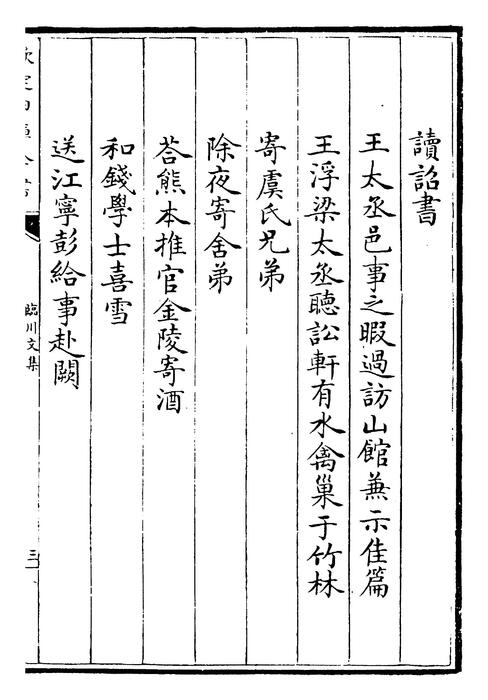 讀詔書
王太丞邑事之暇過訪山館兼示佳篇
王浮梁太丞聽訟軒有水禽巢于竹林
寄虞氏兄弟
除夜寄舍弟
荅熊本推官金陵寄酒
和錢學士喜雪
送江寧彭給事赴闕
欽定四庫全書
臨川文集
三